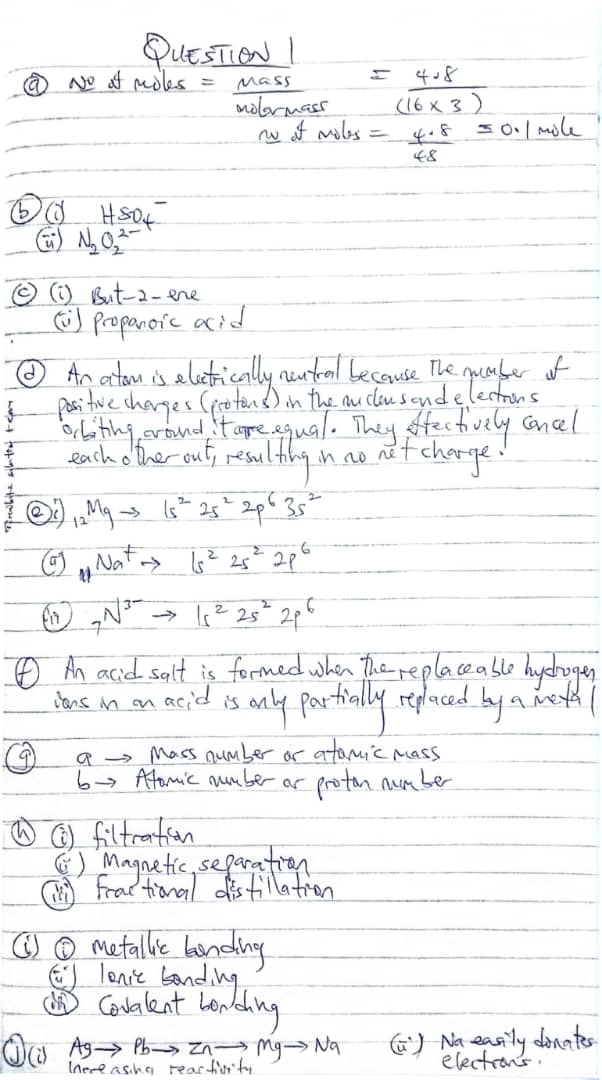 QUESTION 1
(a) No of moles = mass / molar mass = 4.8 / (16 x 3)
no of moles = 4.8 / 48 = 0.1 mole
(b) (i) HSO₄⁻
(ii) N₂O₂²⁻
(c) (i) But-2-ene
(ii) Propanoic acid
(d) An atom is electrically neutral because The number of
positive charges (protons) in the nucleus and electrons
orbiting around it are equal. They effectively cancel
each other out, resulting in no net charge.
(e) i) ₁₂Mg → 1s² 2s² 2p⁶ 3s²
(ii) ₁₁Na⁺ → 1s² 2s² 2p⁶
(iii) ₇N³⁻ → 1s² 2s² 2p⁶
(f) An acid salt is formed when the replaceable hydrogen
ions in an acid is only partially replaced by a metal
(g) a → Mass number or atomic mass
b → Atomic number or proton number
(h) (i) filtration
(ii) Magnetic separation
(iii) Fractional distillation
(i) (i) Metallic bonding
(ii) Ionic bonding
(iii) Covalent bonding
(j) (i) Ag → Pb → Zn → Mg → Na (ii) Na easily donates
Increasing reactivity electrons.